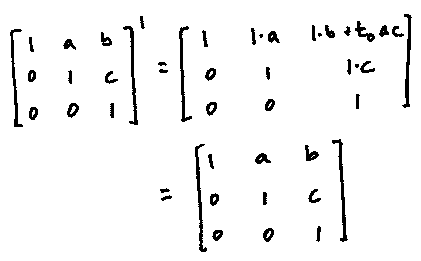 [1 a b; 0 1 c; 0 0 1]^1 = [1 1·a 1·b+t₀ac; 0 1 1·c; 0 0 1]
= [1 a b; 0 1 c; 0 0 1]